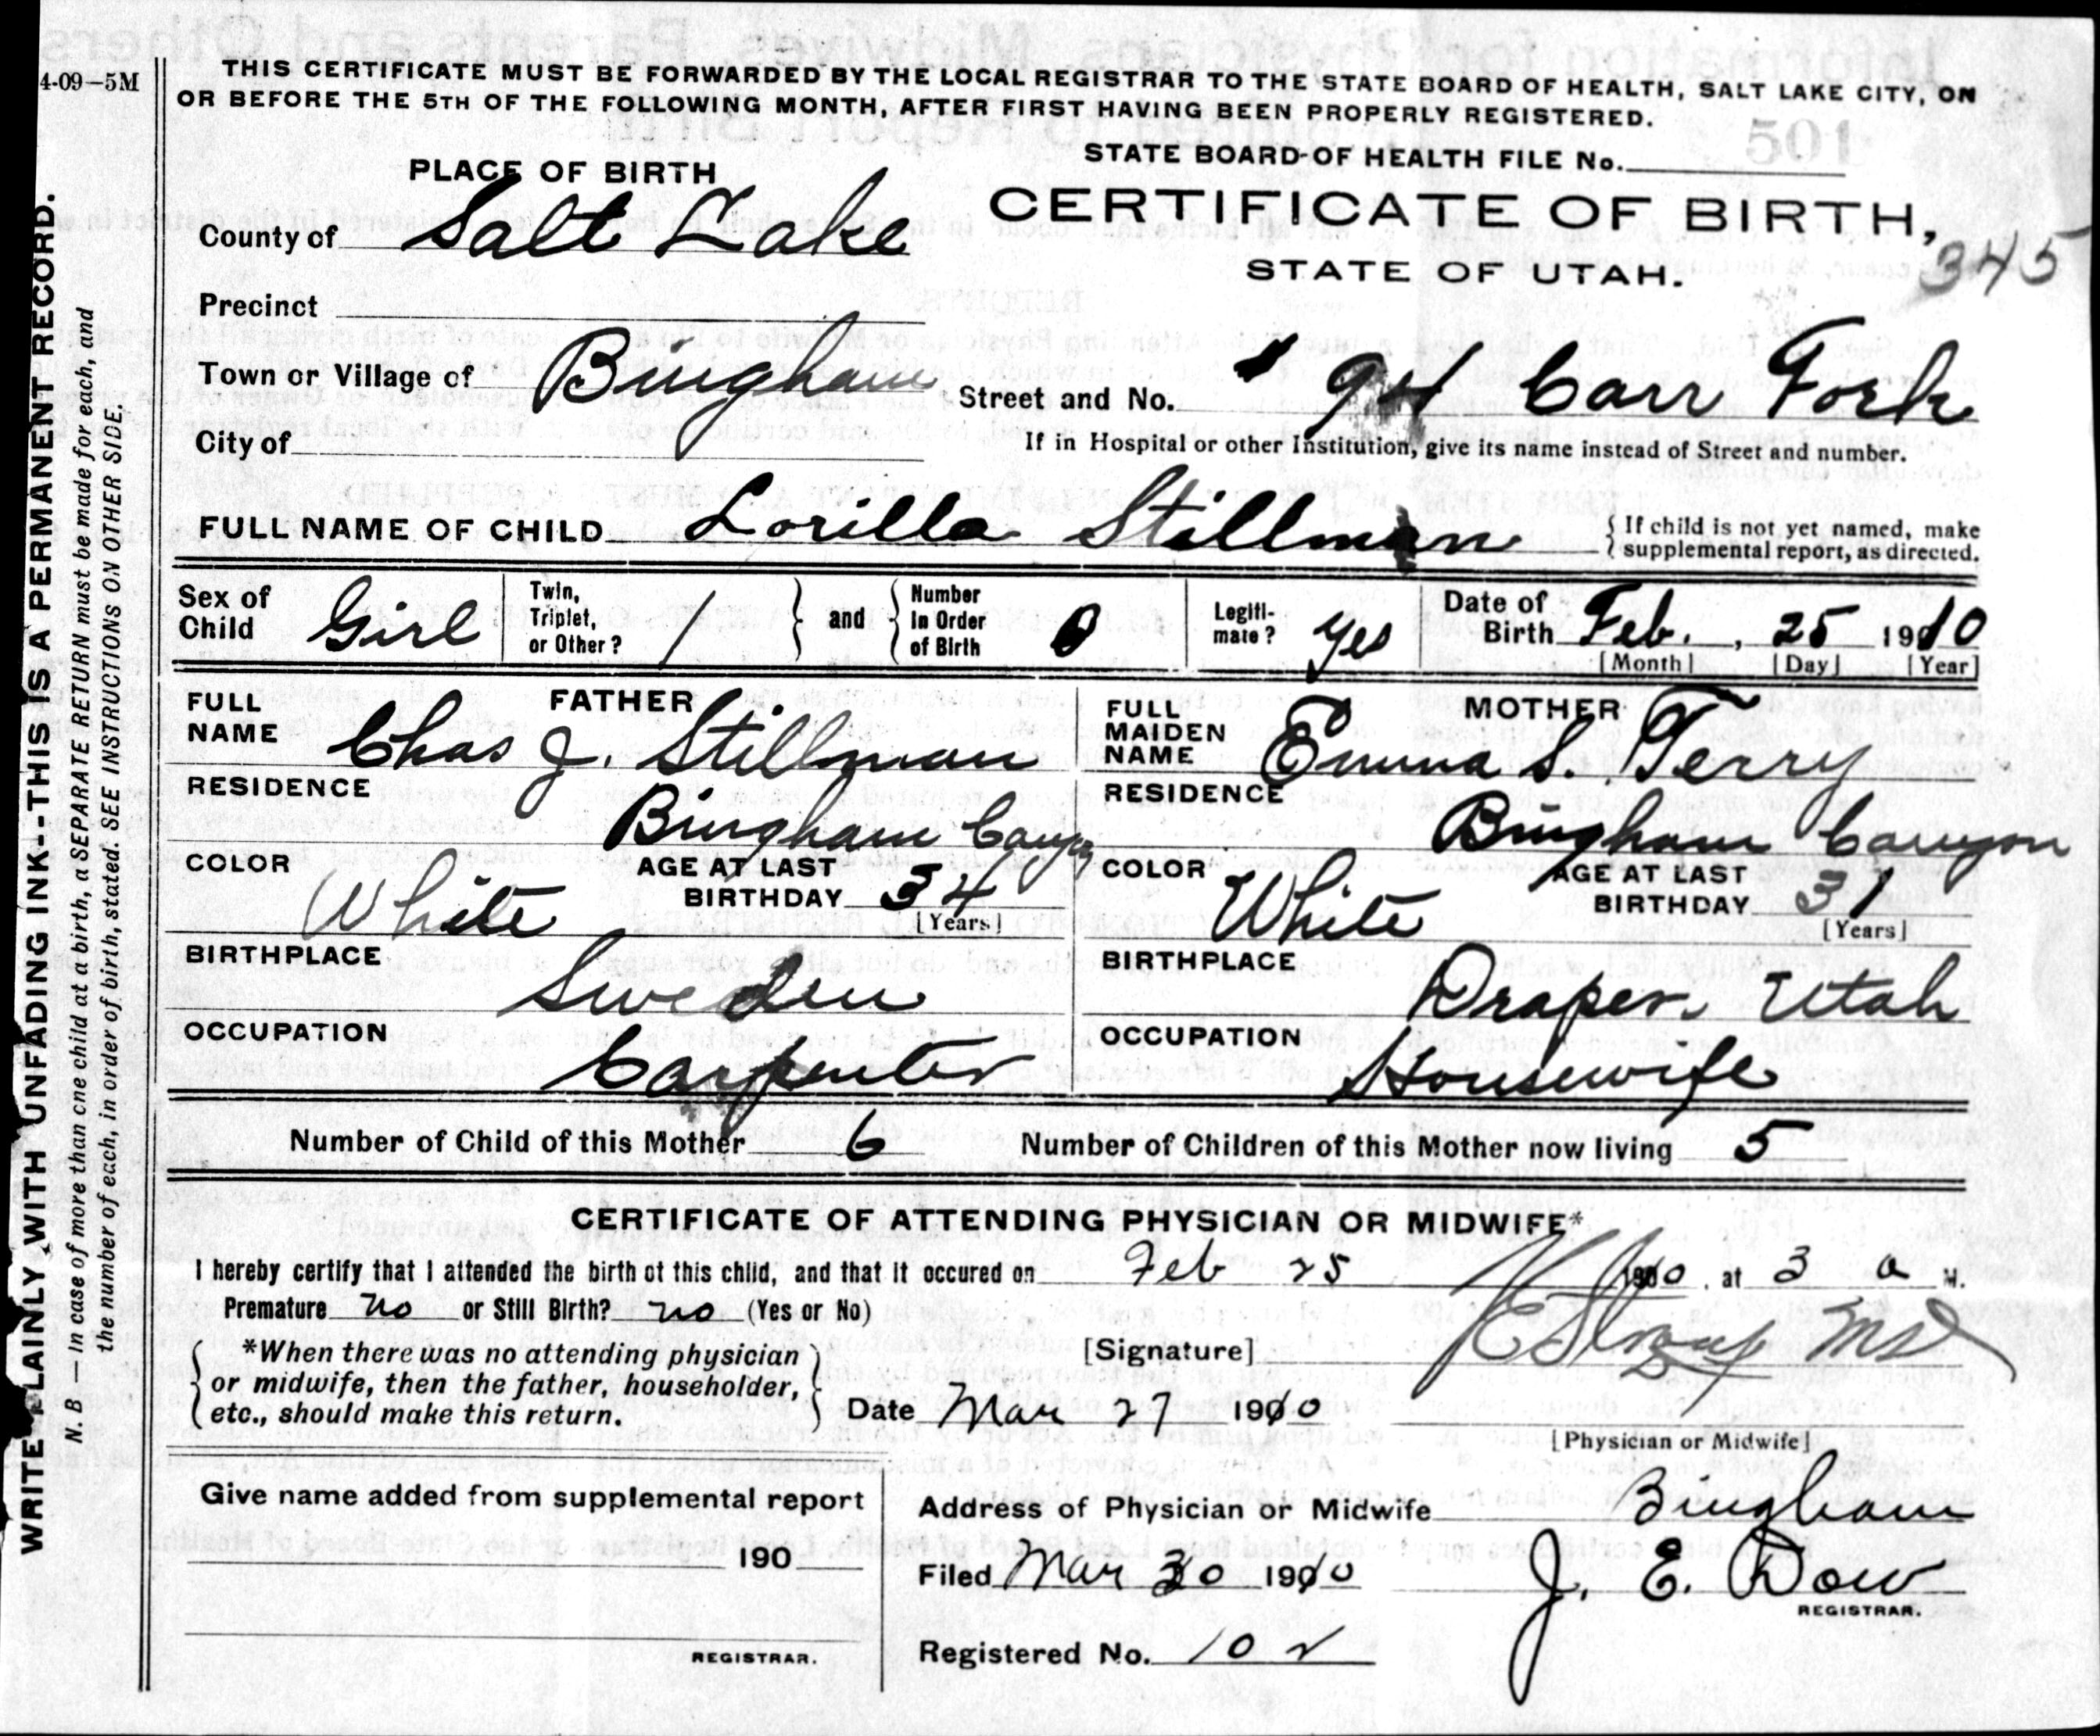 4-09-5M
THIS CERTIFICATE MUST BE FORWARDED BY THE LOCAL REGISTRAR TO THE STATE BOARD OF HEALTH, SALT LAKE CITY, ON
OR BEFORE THE 5TH OF THE FOLLOWING MONTH, AFTER FIRST HAVING BEEN PROPERLY REGISTERED.
STATE BOARD OF HEALTH FILE No. 501
PLACE OF BIRTH
CERTIFICATE OF BIRTH,
STATE OF UTAH.
345
County of Salt Lake
Precinct
Town or Village of Bingham
Street and No. Carr Fork
City of
If in Hospital or other Institution, give its name instead of Street and number.
FULL NAME OF CHILD Lorilla Stillman
If child is not yet named, make
supplemental report, as directed.
Sex of Child Girl
Twin, Triplet, or Other? 1
and
Number In Order of Birth
Legitimate? yes
Date of Birth Feb. , 25 1910
[Month] [Day] [Year]
FATHER
FULL NAME Chas J. Stillman
RESIDENCE Bingham Canyon
COLOR White
AGE AT LAST BIRTHDAY 34
[Years]
BIRTHPLACE Sweden
OCCUPATION Carpenter
MOTHER
FULL MAIDEN NAME Emma S. Terry
RESIDENCE Bingham Canyon
COLOR White
AGE AT LAST BIRTHDAY 31
[Years]
BIRTHPLACE Draper Utah
OCCUPATION Housewife
Number of Child of this Mother 6
Number of Children of this Mother now living 5
CERTIFICATE OF ATTENDING PHYSICIAN OR MIDWIFE*
I hereby certify that I attended the birth of this child, and that it occured on Feb 25, 1910, at 3 a M.
Premature no or Still Birth? no (Yes or No)
*When there was no attending physician
or midwife, then the father, householder,
etc., should make this return.
[Signature]
Date Mar 27 1910
[Physician or Midwife]
Give name added from supplemental report
190
REGISTRAR.
Address of Physician or Midwife Bingham
Filed Mar 30 1910
J. E. Dow
REGISTRAR.
Registered No. 102
WRITE PLAINLY WITH UNFADING INK--THIS IS A PERMANENT RECORD.
N. B — In case of more than one child at a birth, a SEPARATE RETURN must be made for each, and
the number of each, in order of birth, stated. SEE INSTRUCTIONS ON OTHER SIDE.